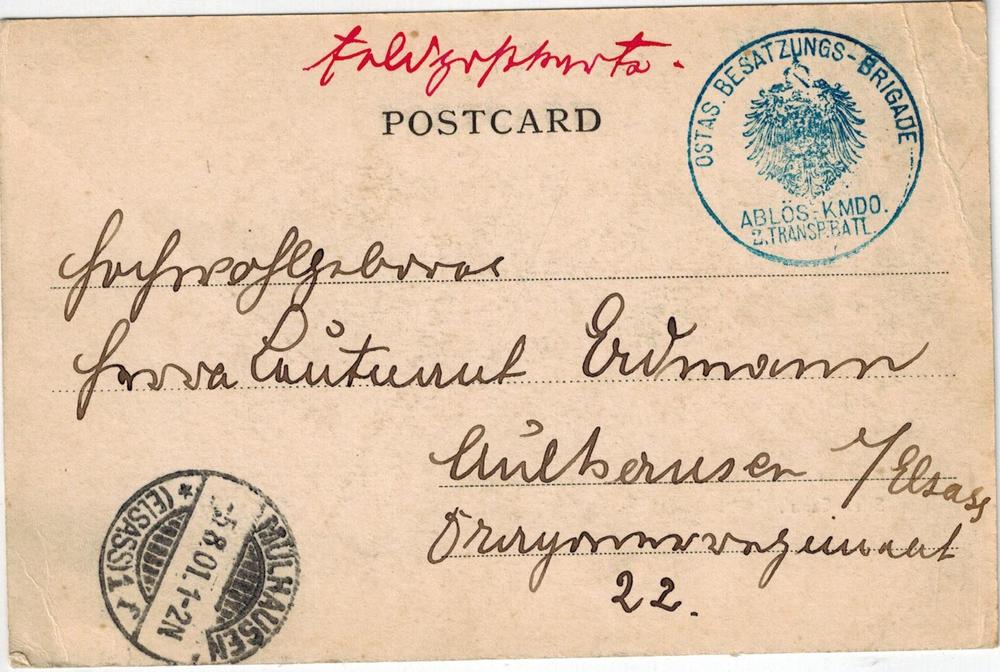 Feldpostkarte.
POSTCARD
OSTAS. BESATZUNGS-BRIGADE
ABLÖS.-KMDO.
2.TRANSP.BATL.
Hochwohlgeboren
Herrn Leutnant Erdmann
Mülhausen i/Elsass
Dragonerregiment
22.
MÜLHAUSEN
(ELSASS) 1
-5.8.01.1-2N